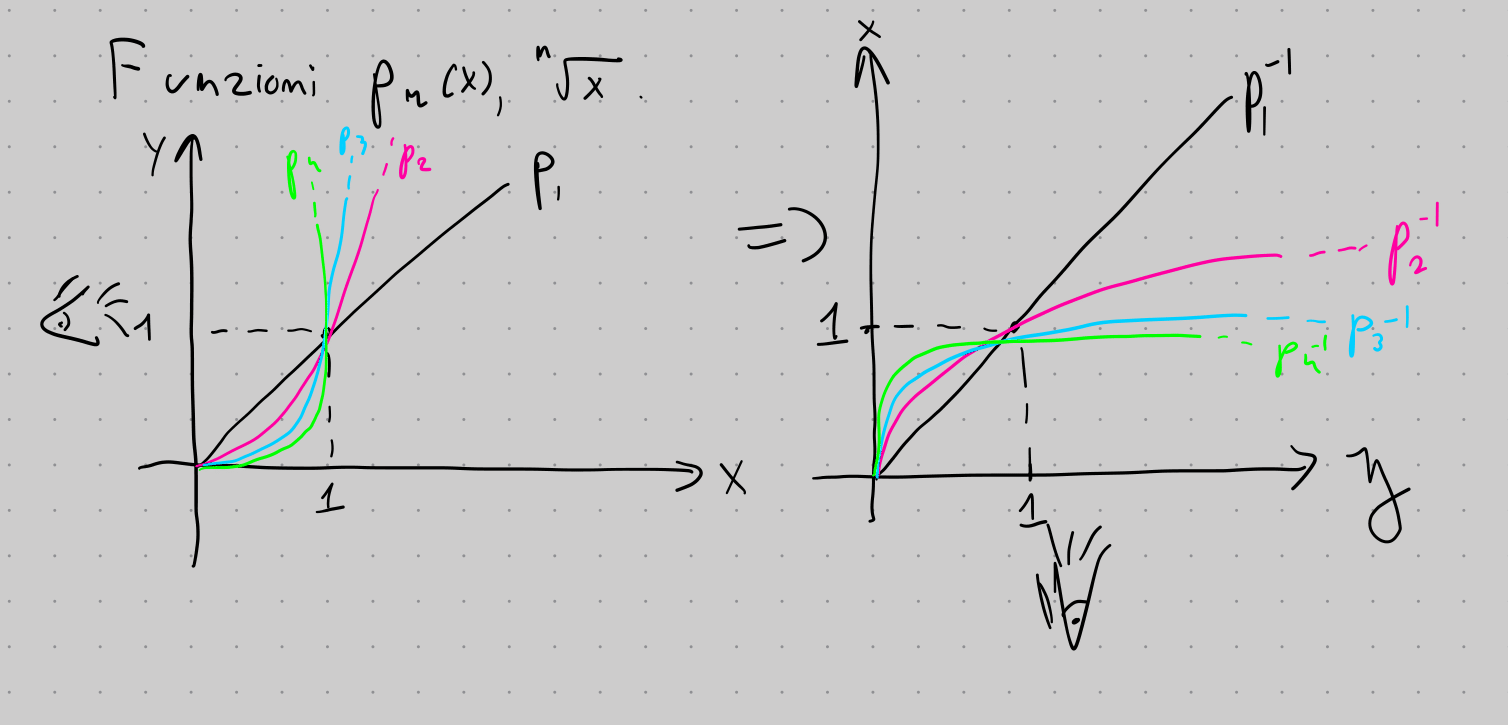 Funzioni pₙ(x), ⁿ√x.
y
pₙ
p₃
p₂
p₁
1
1
x
⇒
x
p₁⁻¹
p₂⁻¹
p₃⁻¹
pₙ⁻¹
1
1
y